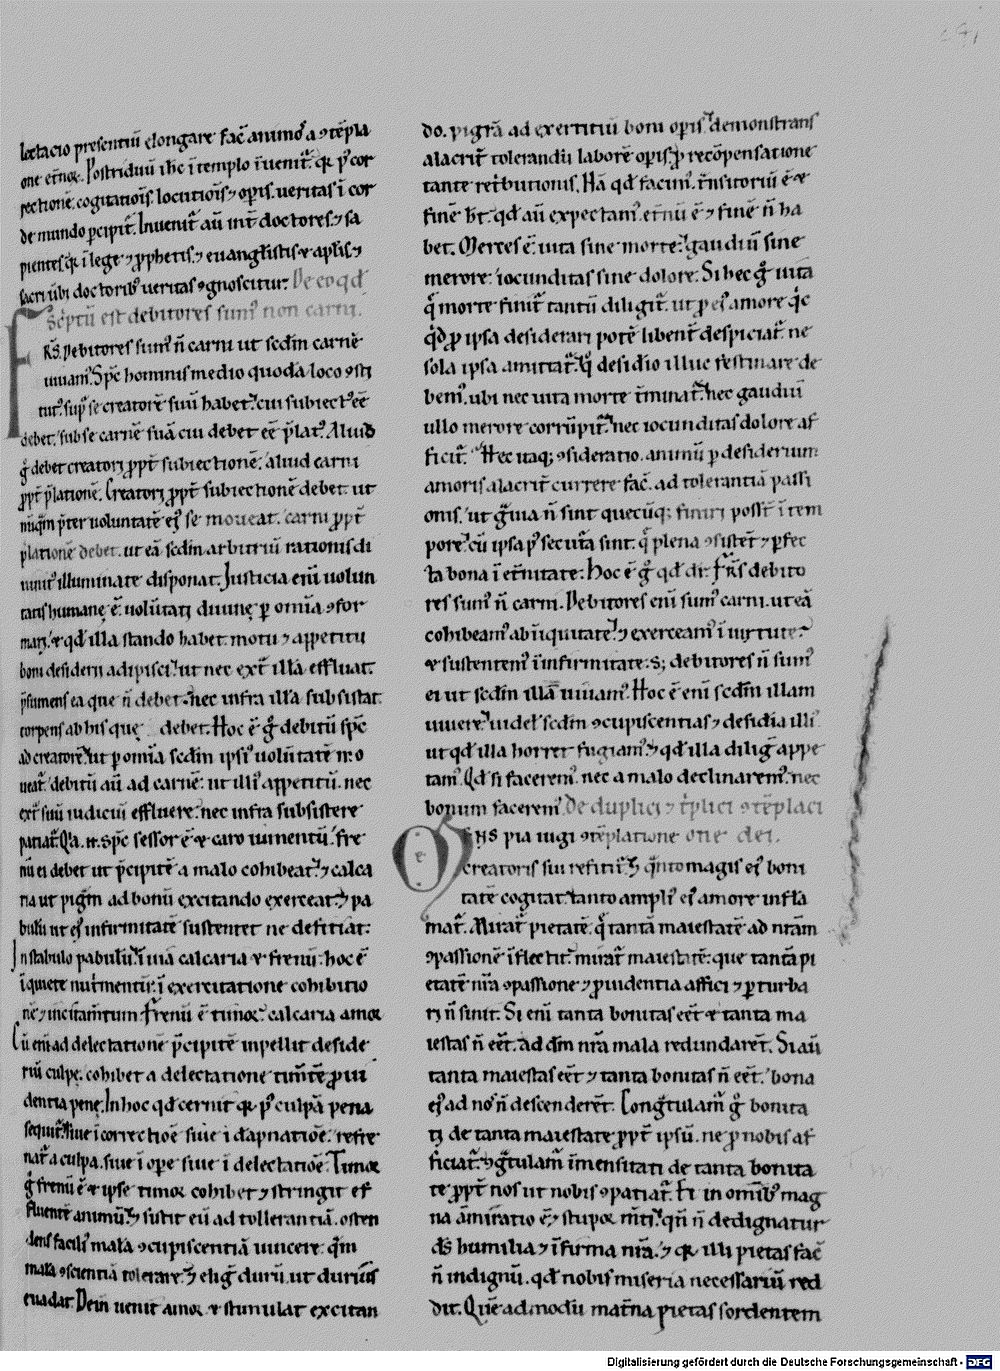 lectacio presentiū elongare fac̄ animū a ꝯtēpla
one et̄noꝝ. Postriduū iħc ī templo īuenit᷒. qꝛ p᷒ cor
rectionē. cogitatiōis, locutiōis ⁊ opis. ueritas ī cor
de mundo ꝑcipit᷒. Inuenit᷒ aū int̄ doctores, ⁊ sa
pientes. qꝛ ī lege ⁊ ꝓphetis, ⁊ euangłistis ⁊ apłis, ⁊
sacri ubi doctorib᷒ ueritas ꝯgnoscitur. De eo qđ
Sc̄ptū est debitores sum᷒ non carni.
FRS̄. Debitores sum᷒ n̄ carni ut sc̄dm carnē
uiuam᷒. Sp̄c hominis medio quodā loco ꝯsti
tut᷒. sup᷒ se creatorē suū habet. cui subiect᷒ ēē
debet. sub se carnē suā cui debet ēē p̄lat᷒. Aliud
g̊ debet creatori ꝓpt̄ subiectionē. aliud carni
ꝓpt̄ p̄lationē. Creatori ꝓpt̄ subiectionē debet. ut
nūq̄m p̄ter uoluntatē ei᷒ se moueat. carni ꝓpt̄
p̄lationē debet. ut eā sc̄dm arbitriū rationis di
uinit᷒ illuminate disponat. Justicia eni uolun
tatis humanę ē. uolūtati diuinę ꝑ omīa ꝯfor
mari. ⁊ qđ illa stando habet. motu ⁊ appetitu
boni desiderii adipisci. ut nec ext̄ illā effluat.
p̄sumens ea que n̄ debet. nec infra illā subsistat.
torpens ab his quę debet. Hoc ē g̊ debitū sp̄c
ad creatorē. ut ꝑ omīa sc̄dm ipsi᷒ uolūtatē mo
ueat᷒. debitū aū ad carnē. ut illi᷒ appetitū. nec
ext̄ suū iudiciū effluere. nec infra subsistere
patiat᷒. Q̄a. n. sp̄c sessor ē ⁊ caro iumentū. fre
nū ei debet ut p̄cipitē a malo cohibeat. ⁊ calca
ria ut pigrā ad bonū excitando exerceat. ⁊ pa
bulū ut ei᷒ infirmitatē sustentet ne deficiat.
In stabulo pabulū. ī uia calcaria ⁊ frenū. hoc ē
ī quiete nutrimentū. ī exercitatione cohibitio
nē ⁊ incitam̄tum. Frenū ē timoꝛ. calcaria amoꝛ
Cū eni ad delectationē p̄cipitē inpellit deside
riū culpę. cohibet a delectatione timētē ꝓui
dentia penę. In hoc qđ cernit qꝛ p᷒ culpā pena
sequit᷒. siue ī correctiōe siue ī dāpnatiōe. refre
nat᷒ a culpa. siue ī ope siue ī delectatiōe. Timoꝛ
g̊ frenū ē ⁊ ipse timoꝛ cohibet ⁊ stringit ef
fluentē animū. ⁊ sistit eū ad tollerantiā. osten
dens facili᷒ malā ꝯcupiscentiā uincere. q̄m
mala ꝯscientiā tolerare. ⁊ eligt̄ durū. ut duriūs
euadat. Dein̄ uenit amoꝛ ⁊ stimulat excitan
do. pigrā ad exercitiū boni opis. demonstrans
alacrit̄ tolerandū laborē opis. ꝓ recōpensatione
tante ret̄butionis. Nā qđ facim᷒. t̄nsitoriū ē ⁊
finē ht̄. qđ aū expectam᷒. et̄nū ē ⁊ finē n̄ ha
bet. Merces ē. uita sine morte. gaudiū sine
merore. iocunditas sine dolore. Si hec g̊ uita
q̄ morte finit᷒ tantū diligit᷒. ut ꝓ ei᷒ amore q̄c
q̄d ꝓ ipsa desiderari potē libent̄ despiciat᷒. ne
sola ipsa amittat᷒. q̄ desidio illuc festinare de
bem᷒. ubi nec uita morte t̄minat᷒. nec gaudiū
ullo merore corrūpit᷒. nec iocunditas dolore af
ficit᷒. Hec itaq; ꝯsideratio. animū ꝑ desiderium
amoris alacrit̄ currere fac̄. ad tolerantiā passi
onis. ut g̊uia n̄ sint quecūq; finiri posst̄ ī tem
pore. cū ipsa p᷒ secuta sint. q̄ plena ꝯsistet ⁊ ꝑfec
ta bona ī et̄nitate. Hoc ē g̊ qđ di᷒. Fr̄s debito
res sum᷒ n̄ carni. Debitores eni sum᷒ carni. ut eā
cohibeam᷒ ab iniquitate. ⁊ exerceam᷒ ī uirtute.
⁊ sustentem᷒ ī infirmitate. S; debitores n̄ sum᷒
ei ut sc̄dm illā uiuam᷒. Hoc ē eni sc̄dm illam
uiuere. uidel̄ sc̄dm ꝯcupiscentias ⁊ desidia illi᷒
ut qđ illa horret fugiam᷒. ⁊ qđ illa diligt̄ appe
tam᷒. Qđ si facerem᷒. nec a malo declinarem᷒. nec
bonum facerem᷒. De duplici ⁊ t̄plici ꝯtēplaci
one dei.
QENS pia iugi ꝯtēplatione
creatoris sui reficit᷒. ⁊ q̄nto magis ei᷒ boni
tatē cogitat. tanto ampli᷒ ei᷒ amore inflā
mat᷒. Mirat᷒ pietatē. q̄ tantā maiestatē ad nr̄am
ꝯpassionē īflectit. mirat᷒ maiestatē. que tantā pi
etatē nr̄a ꝯpassione ⁊ ꝓuidentia affici ⁊ ꝑturba
ri n̄ sinit. Si eni tanta bonitas eēt ⁊ tanta ma
iestas n̄ eēt. ad dm̄ nr̄a mala redundarēt. Si aū
tanta maiestas eēt ⁊ tanta bonitas n̄ eēt. bona
ei᷒ ad nos n̄ descenderēt. Congr̄tulam᷒ g̊ bonita
ti de tanta maiestate ꝓpt̄ ipsū. ne ꝓ nobis af
ficiat᷒. ꝯgr̄tulam᷒ īmensitati de tanta bonita
te ꝓpt̄ nos ut nobis ꝯpatiat᷒. Et in omīb᷒ mag
na amiratio ē. ⁊ stupoꝛ mīti. qn̄ n̄ dedignatur
ds̄ humilia ⁊ īfirma nr̄a. ⁊ qꝛ illi pietas fac̄
n̄ indignū. qđ nobis miseria necessariū red
dit. Quēadmodū mat̄na pietas sordentem
Digitalisierung gefördert durch die Deutsche Forschungsgemeinschaft - DFG